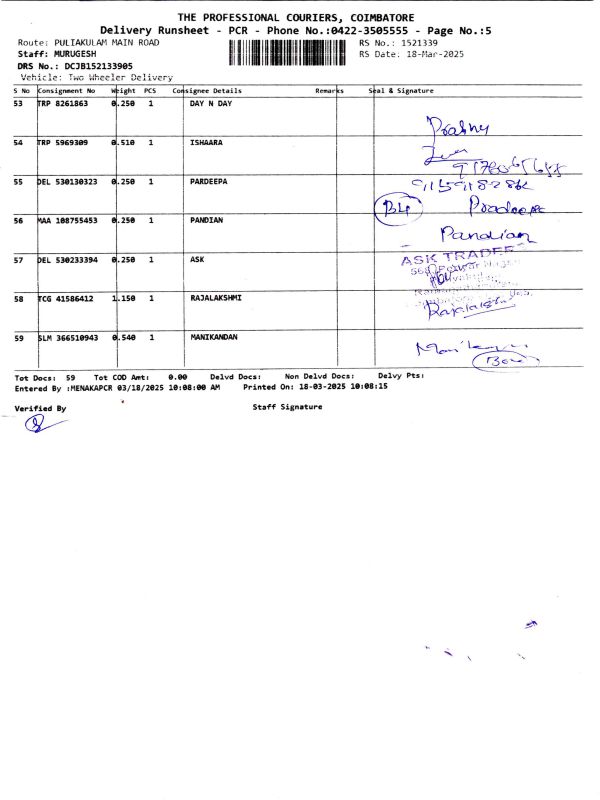 THE PROFESSIONAL COURIERS, COIMBATORE
Delivery Runsheet - PCR - Phone No.:0422-3505555 - Page No.:5
Route: PULIAKULAM MAIN ROAD RS No.: 1521339
Staff: MURUGESH RS Date: 18-Mar-2025
DRS No.: DCJB152133905
Vehicle: Two Wheeler Delivery
S No Consignment No Weight PCS Consignee Details Remarks Seal & Signature
53 TRP 8261863 0.250 1 DAY N DAY
54 TRP 5969309 0.510 1 ISHAARA
55 DEL 530130323 0.250 1 PARDEEPA
B4
56 MAA 108755453 0.250 1 PANDIAN Pandian
57 DEL 530233394 0.250 1 ASK ASK TRADER
58 TCG 41586412 1.150 1 RAJALAKSHMI
59 SLM 366510943 0.540 1 MANIKANDAN
Tot Docs: 59 Tot COD Amt: 0.00 Delvd Docs: Non Delvd Docs: Delvy Pts:
Entered By :MENAKAPCR 03/18/2025 10:08:00 AM Printed On: 18-03-2025 10:08:15
Verified By Staff Signature